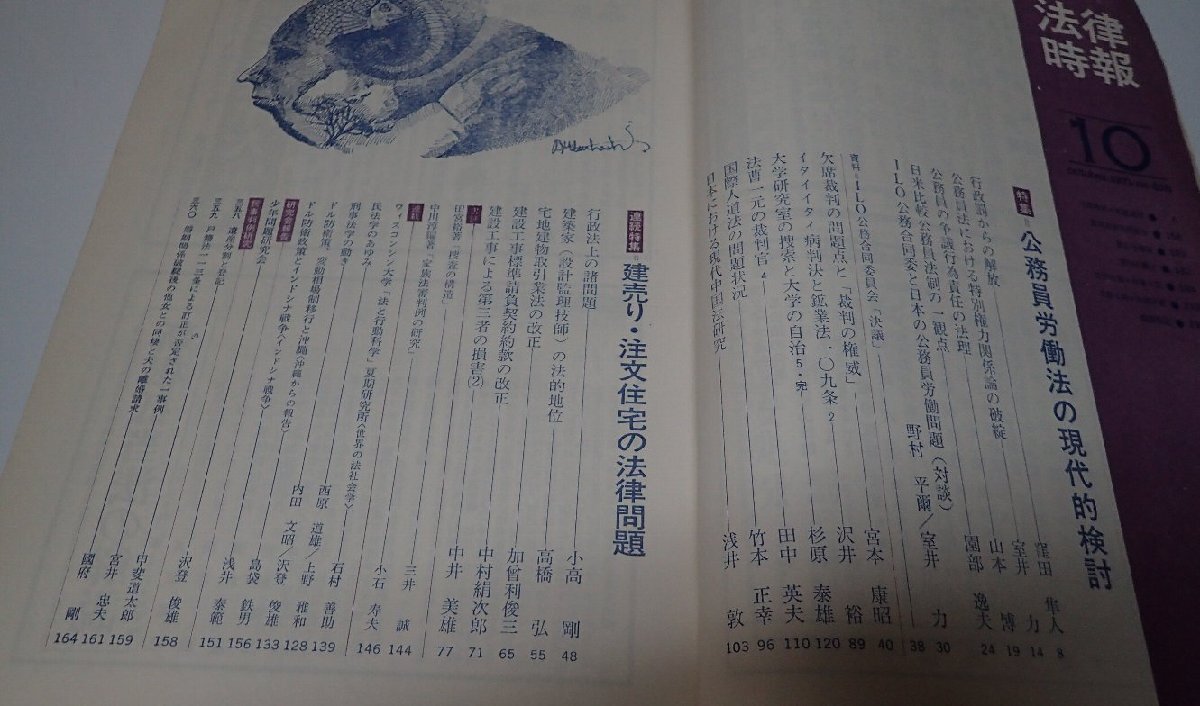 法律
時報
10
特集 公務員労働法の現代的検討
行政罰からの解放 窪田 隼人 8
公務員法における特別権力関係論の破綻 室井 力 14
公務員の争議行為責任の法理 山本 博 19
日米比較公務員法制の一観点 園部 逸夫 24
ILO公務合同委と日本の公務員労働問題(対談) 野村 平爾/室井 力 30
資料・ILO公務合同委員会「決議」 38
欠席裁判の問題点と「裁判の権威」 宮本 康昭 40
イタイイタイ病判決と鉱業法一〇九条 2 沢井 裕 89
大学研究室の捜索と大学の自治 5・完 杉原 泰雄 120
法曹一元の裁判官 4 田中 英夫 110
国際人道法の問題状況 竹本 正幸 96
日本における現代中国法研究 浅井 敦 103
連続特集 6 建売り・注文住宅の法律問題
行政法上の諸問題 小高 剛 48
建築家(設計監理技師)の法的地位 高橋 弘 55
宅地建物取引業法の改正 加曾利俊三 65
建設工事標準請負契約約款の改正 中村絹次郎 71
建設工事による第三者の損害(2) 中井 美雄 77
田宮裕著「捜査の構造」
中川淳編著「家族法審判例の研究」
ウィスコンシン大学「法と行動科学」夏期研究所〈世界の法社会学〉 三井 誠 144
民法学のあゆみ 小石 寿夫 146
刑事法学の動き
ドル防衛策、変動相場制移行と沖縄〈沖縄からの報告〉 石村 善助 139
ドル防衛政策とインドシナ戦争〈インドシナ戦争〉
西原 道雄/上野 雅和 128
内田 文昭/沢登 俊雄 133
少年問題研究会
島袋 鉄男 156
浅井 泰範 151
民事事例研究
三五八 遺産分割と登記
三五九 戸籍法一一三条による訂正が否定された一事例
三六〇
沢登 俊雄 158
甲斐道太郎 159
宮井 忠夫 161
國府 剛 164